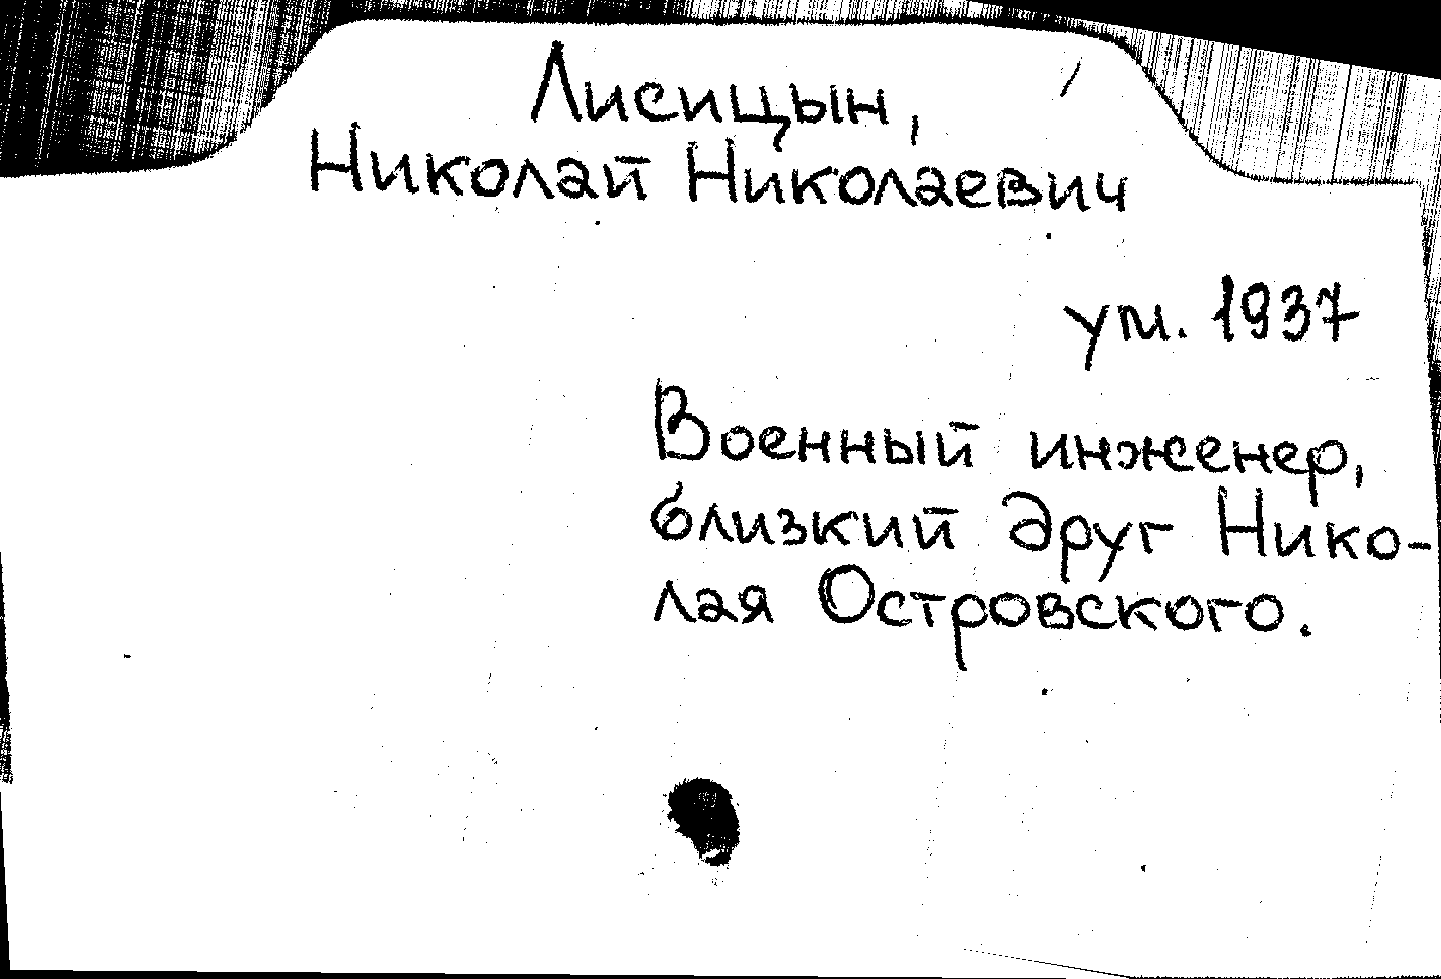 Лисицын,
Николай Николаевич
ум. 1937
Военный инженер,
близкий друг Нико-
лая Островского.